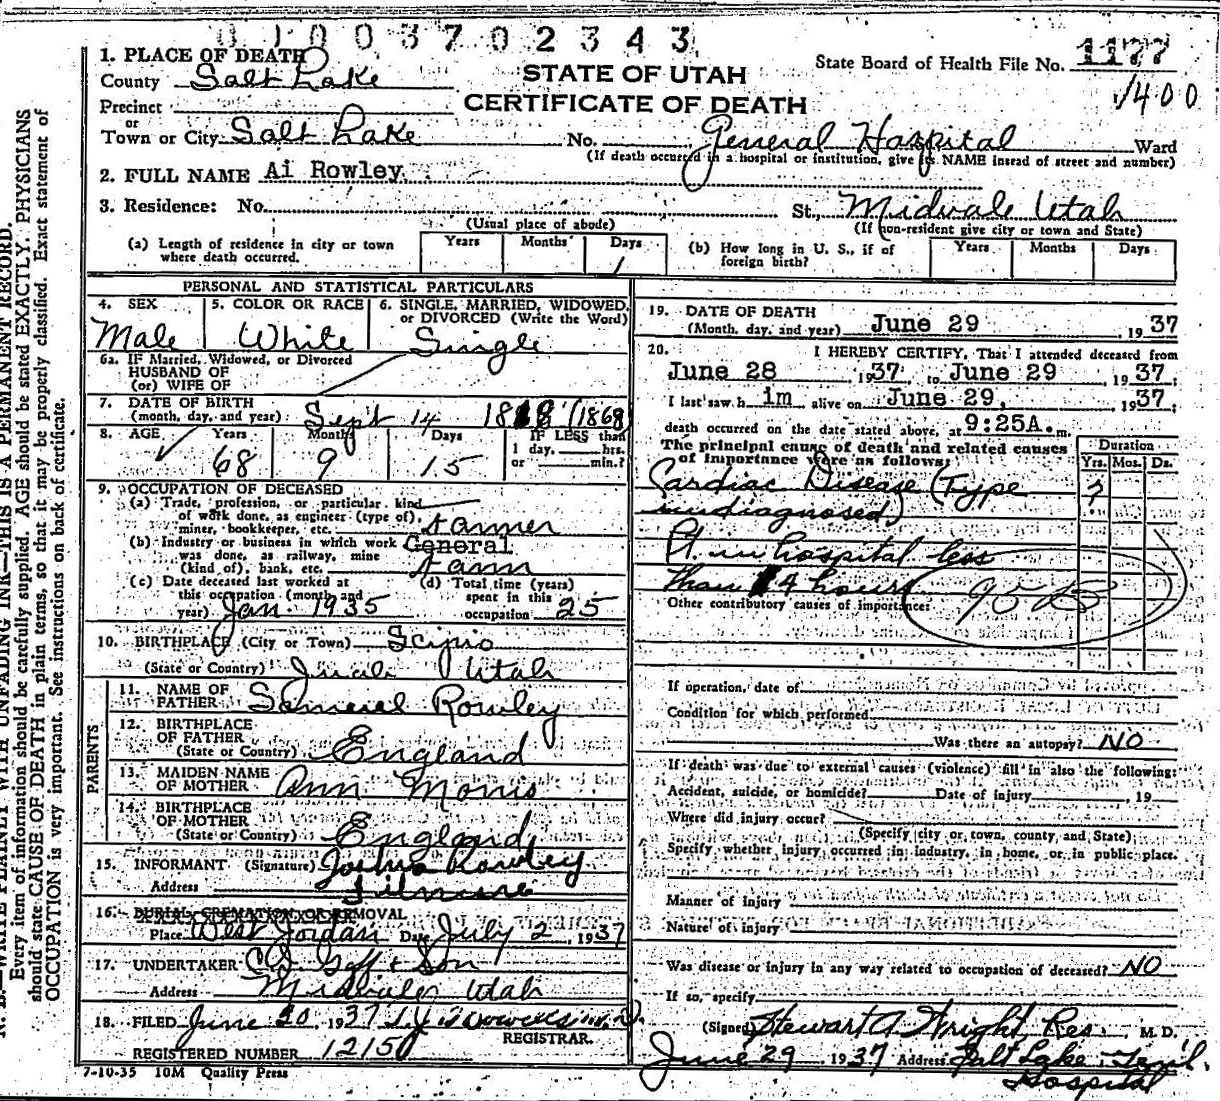 01003702343
1. PLACE OF DEATH
County Salt Lake
STATE OF UTAH
CERTIFICATE OF DEATH
State Board of Health File No. 1177
1400
Precinct
or
Town or City Salt Lake No. General Hospital Ward
(If death occurred in a hospital or institution, give its NAME insead of street and number)
2. FULL NAME Ai Rowley
3. Residence: No. St., Midvale Utah
(Usual place of abode) (If non-resident give city or town and State)
(a) Length of residence in city or town where death occurred. Years Months Days 1
(b) How long in U. S., if of foreign birth? Years Months Days
PERSONAL AND STATISTICAL PARTICULARS
4. SEX Male
5. COLOR OR RACE White
6. SINGLE, MARRIED, WIDOWED, or DIVORCED (Write the Word) Single
6a. IF Married, Widowed, or Divorced
HUSBAND OF
(or) WIFE OF
7. DATE OF BIRTH
(month, day, and year) Sept 14 (1868)
8. AGE Years 68 Months 9 Days 15 IF LESS than 1 day, hrs. or min.?
9. OCCUPATION OF DECEASED
(a) Trade, profession, or particular kind of work done, as engineer (type of), miner, bookkeeper, etc. Farmer
(b) Industry or business in which work was done, as railway, mine (kind of), bank, etc. General Farm
(c) Date deceased last worked at this occupation (month and year) Jan. 1935
(d) Total time (years) spent in this occupation 25
10. BIRTHPLACE (City or Town) Scipio
(State or Country) Utah
PARENTS
11. NAME OF FATHER Samuel Rowley
12. BIRTHPLACE OF FATHER
(State or Country) England
13. MAIDEN NAME OF MOTHER Ann Morris
14. BIRTHPLACE OF MOTHER
(State or Country) England
15. INFORMANT (Signature) Joshua Rowley
Address Filmore
16. BURIAL, CREMATION, OR REMOVAL
Place West Jordan Date July 2, 1937
17. UNDERTAKER Goff & Son
Address Midvale Utah
18. FILED June 30 1937 M.D.
REGISTRAR.
REGISTERED NUMBER 1215
7-10-35 10M Quality Press
19. DATE OF DEATH
(Month, day, and year) June 29 1937
20. I HEREBY CERTIFY, That I attended deceased from
June 28, 1937, to June 29, 1937;
I last saw h im alive on June 29, 1937;
death occurred on the date stated above, at 9:25A. m.
The principal cause of death and related causes of importance were as follows:
Duration
Yrs. Mos. Ds.
Cardiac Disease (Type ?
undiagnosed)
Pt. in hospital less
than 4 hours.
Other contributory causes of importance:
If operation, date of
Condition for which performed
Was there an autopsy? NO
If death was due to external causes (violence) fill in also the following:
Accident, suicide, or homicide? Date of injury , 19
Where did injury occur?
(Specify city or town, county, and State)
Specify whether injury occurred in industry, in home, or in public place.
Manner of injury
Nature of injury
Was disease or injury in any way related to occupation of deceased? NO
If so, specify
(Signed) Stewart A. Wright Res. M. D.
June 29, 1937 Address Salt Lake
Hospital
N. B.—WRITE PLAINLY WITH UNFADING INK—THIS IS A PERMANENT RECORD.
Every item of information should be carefully supplied. AGE should be stated EXACTLY. PHYSICIANS
should state CAUSE OF DEATH in plain terms, so that it may be properly classified. Exact statement of
OCCUPATION is very important. See instructions on back of certificate.